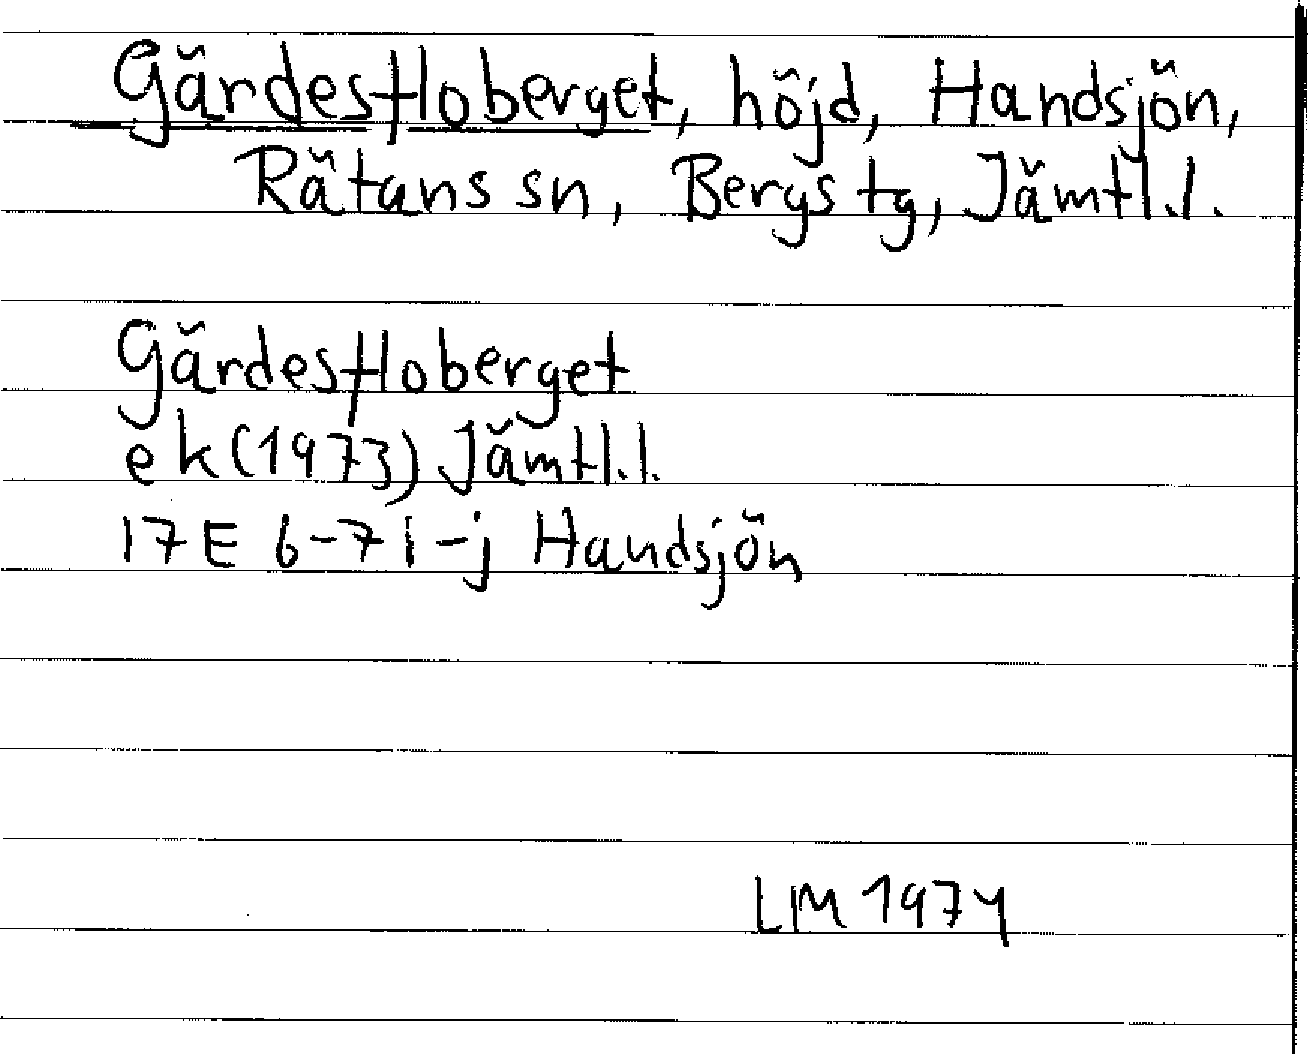 Gärdesfloberget, höjd, Handsjön,
Rätans sn, Bergs tg, Jämtl.l.
Gärdesfloberget
ek (1973) Jämtl.l.
17E 6-7 i-j Handsjön
LM 1974